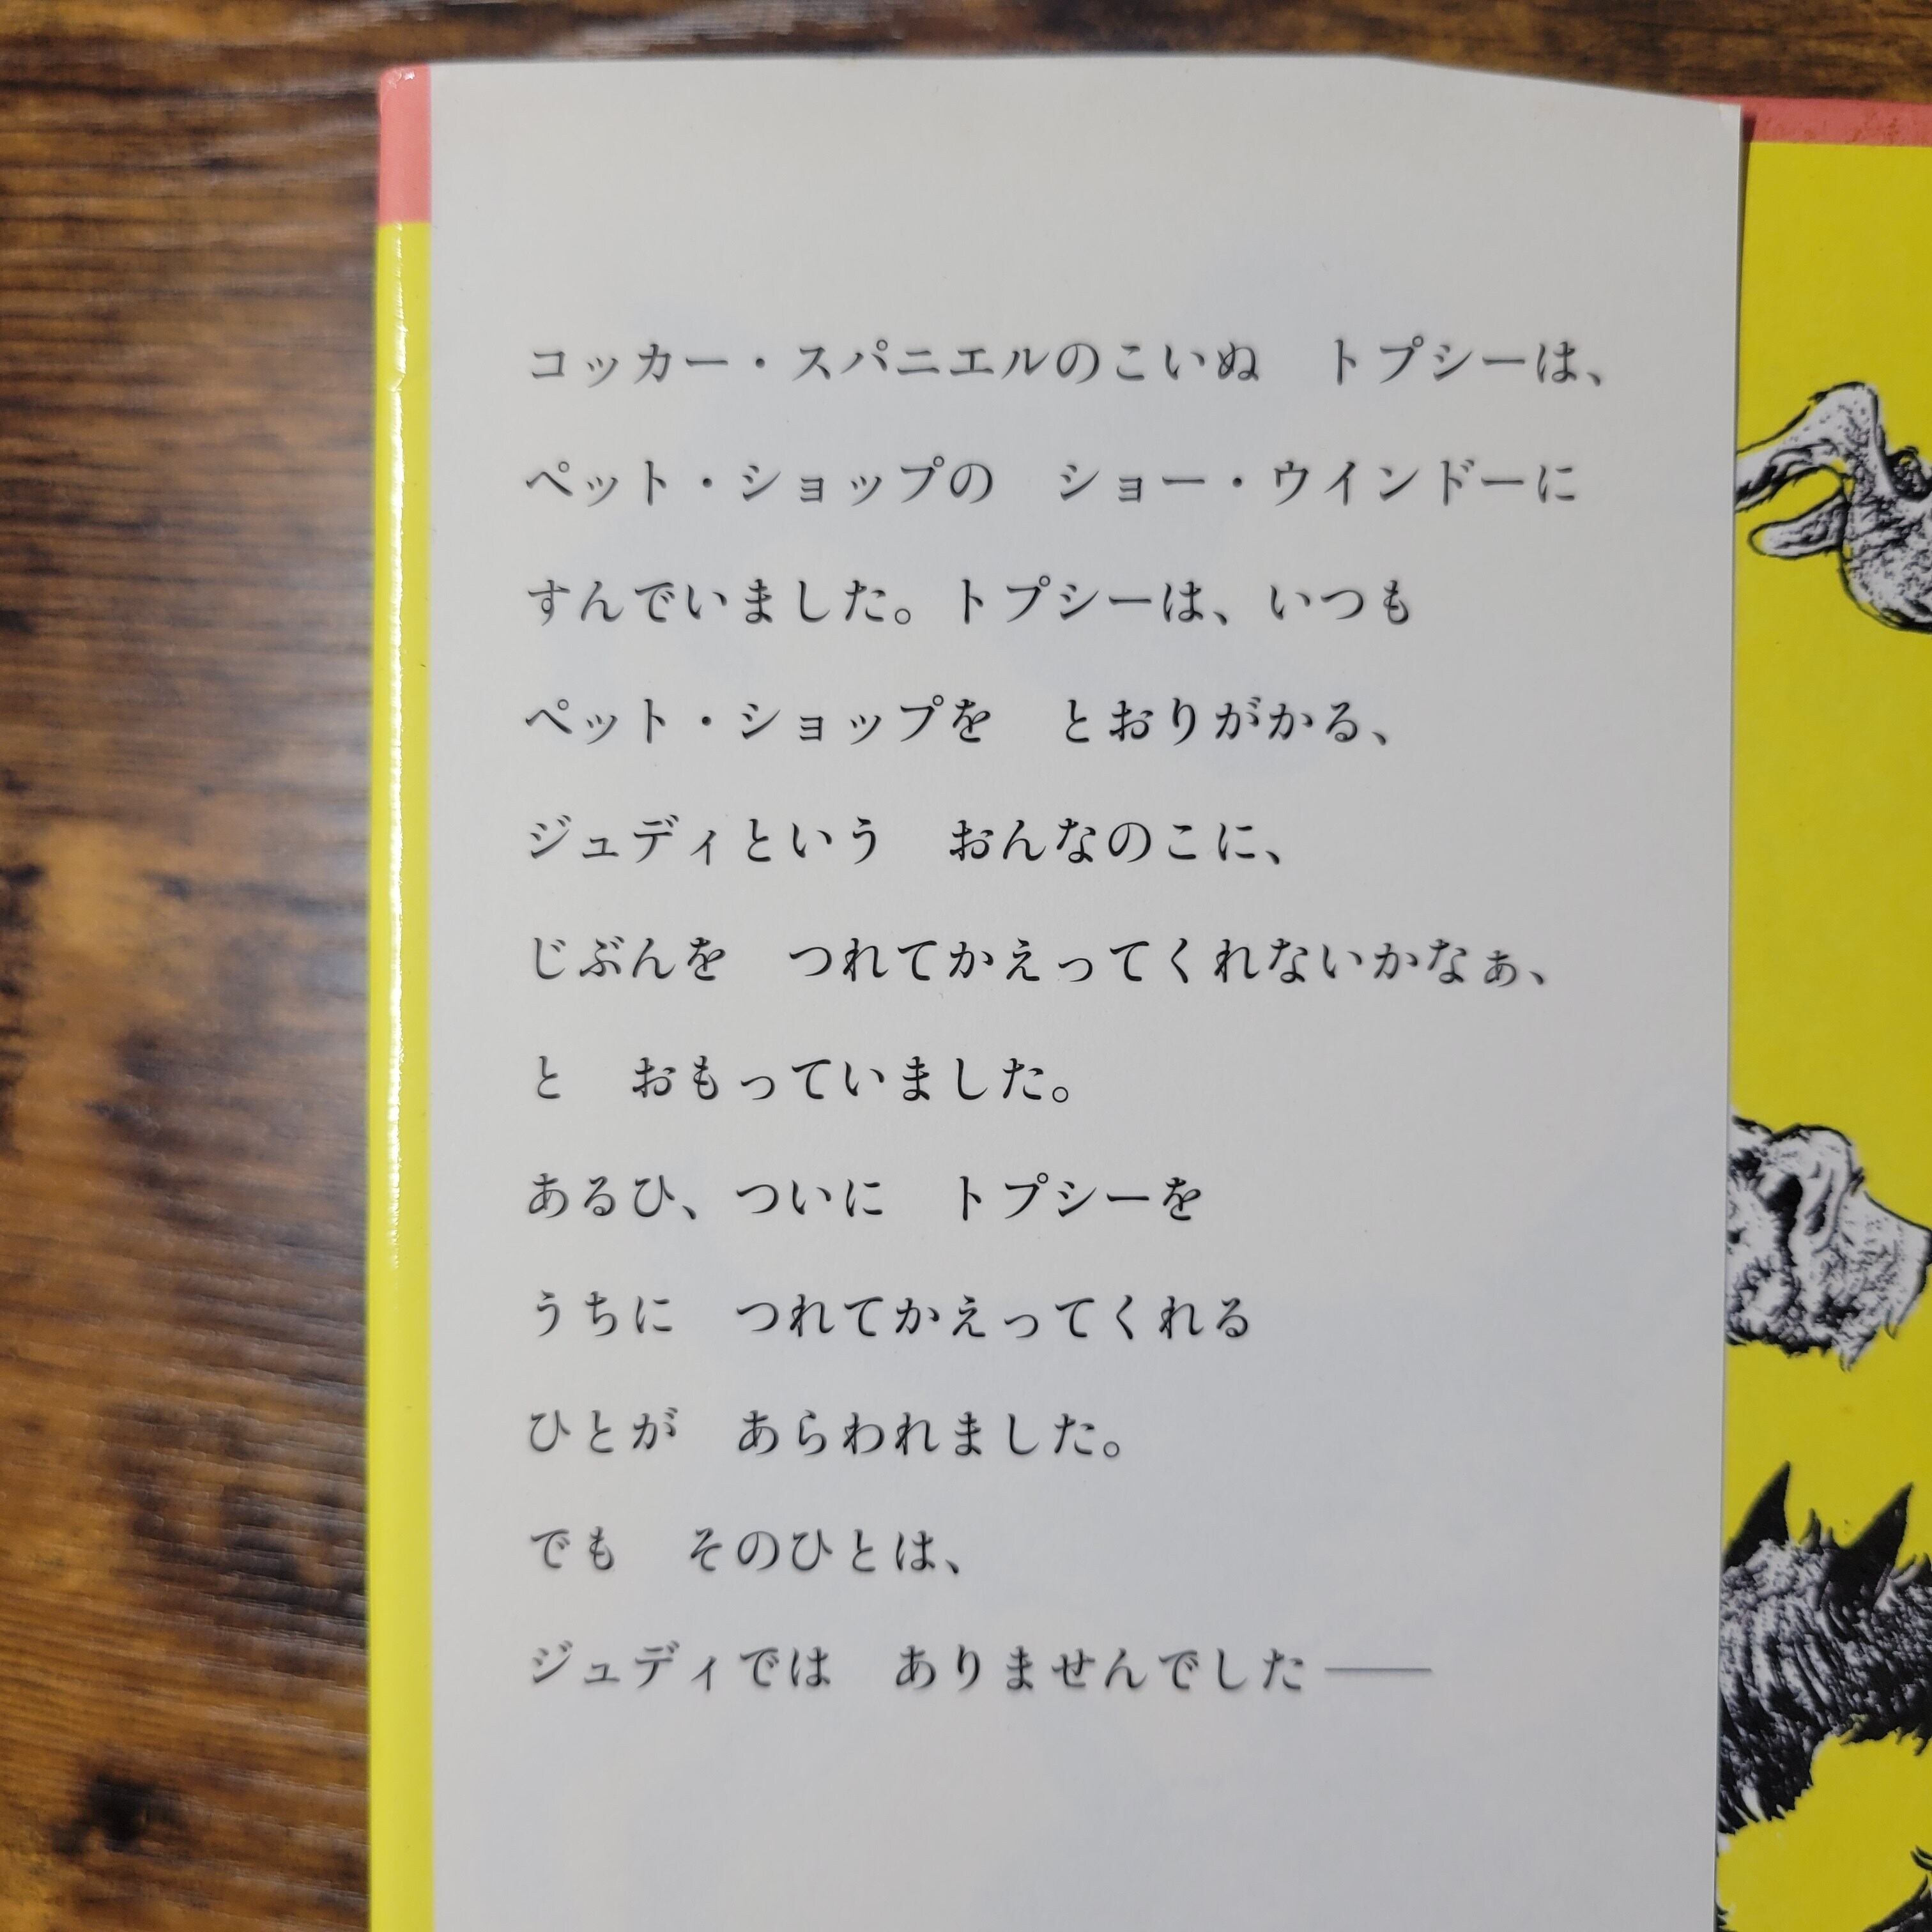 コッカー・スパニエルのこいぬ　トプシーは、
ペット・ショップの　ショー・ウインドーに
すんでいました。トプシーは、いつも
ペット・ショップを　とおりがかる、
ジュディという　おんなのこに、
じぶんを　つれてかえってくれないかなぁ、
と　おもっていました。
あるひ、ついに　トプシーを
うちに　つれてかえってくれる
ひとが　あらわれました。
でも　そのひとは、
ジュディでは　ありませんでした――